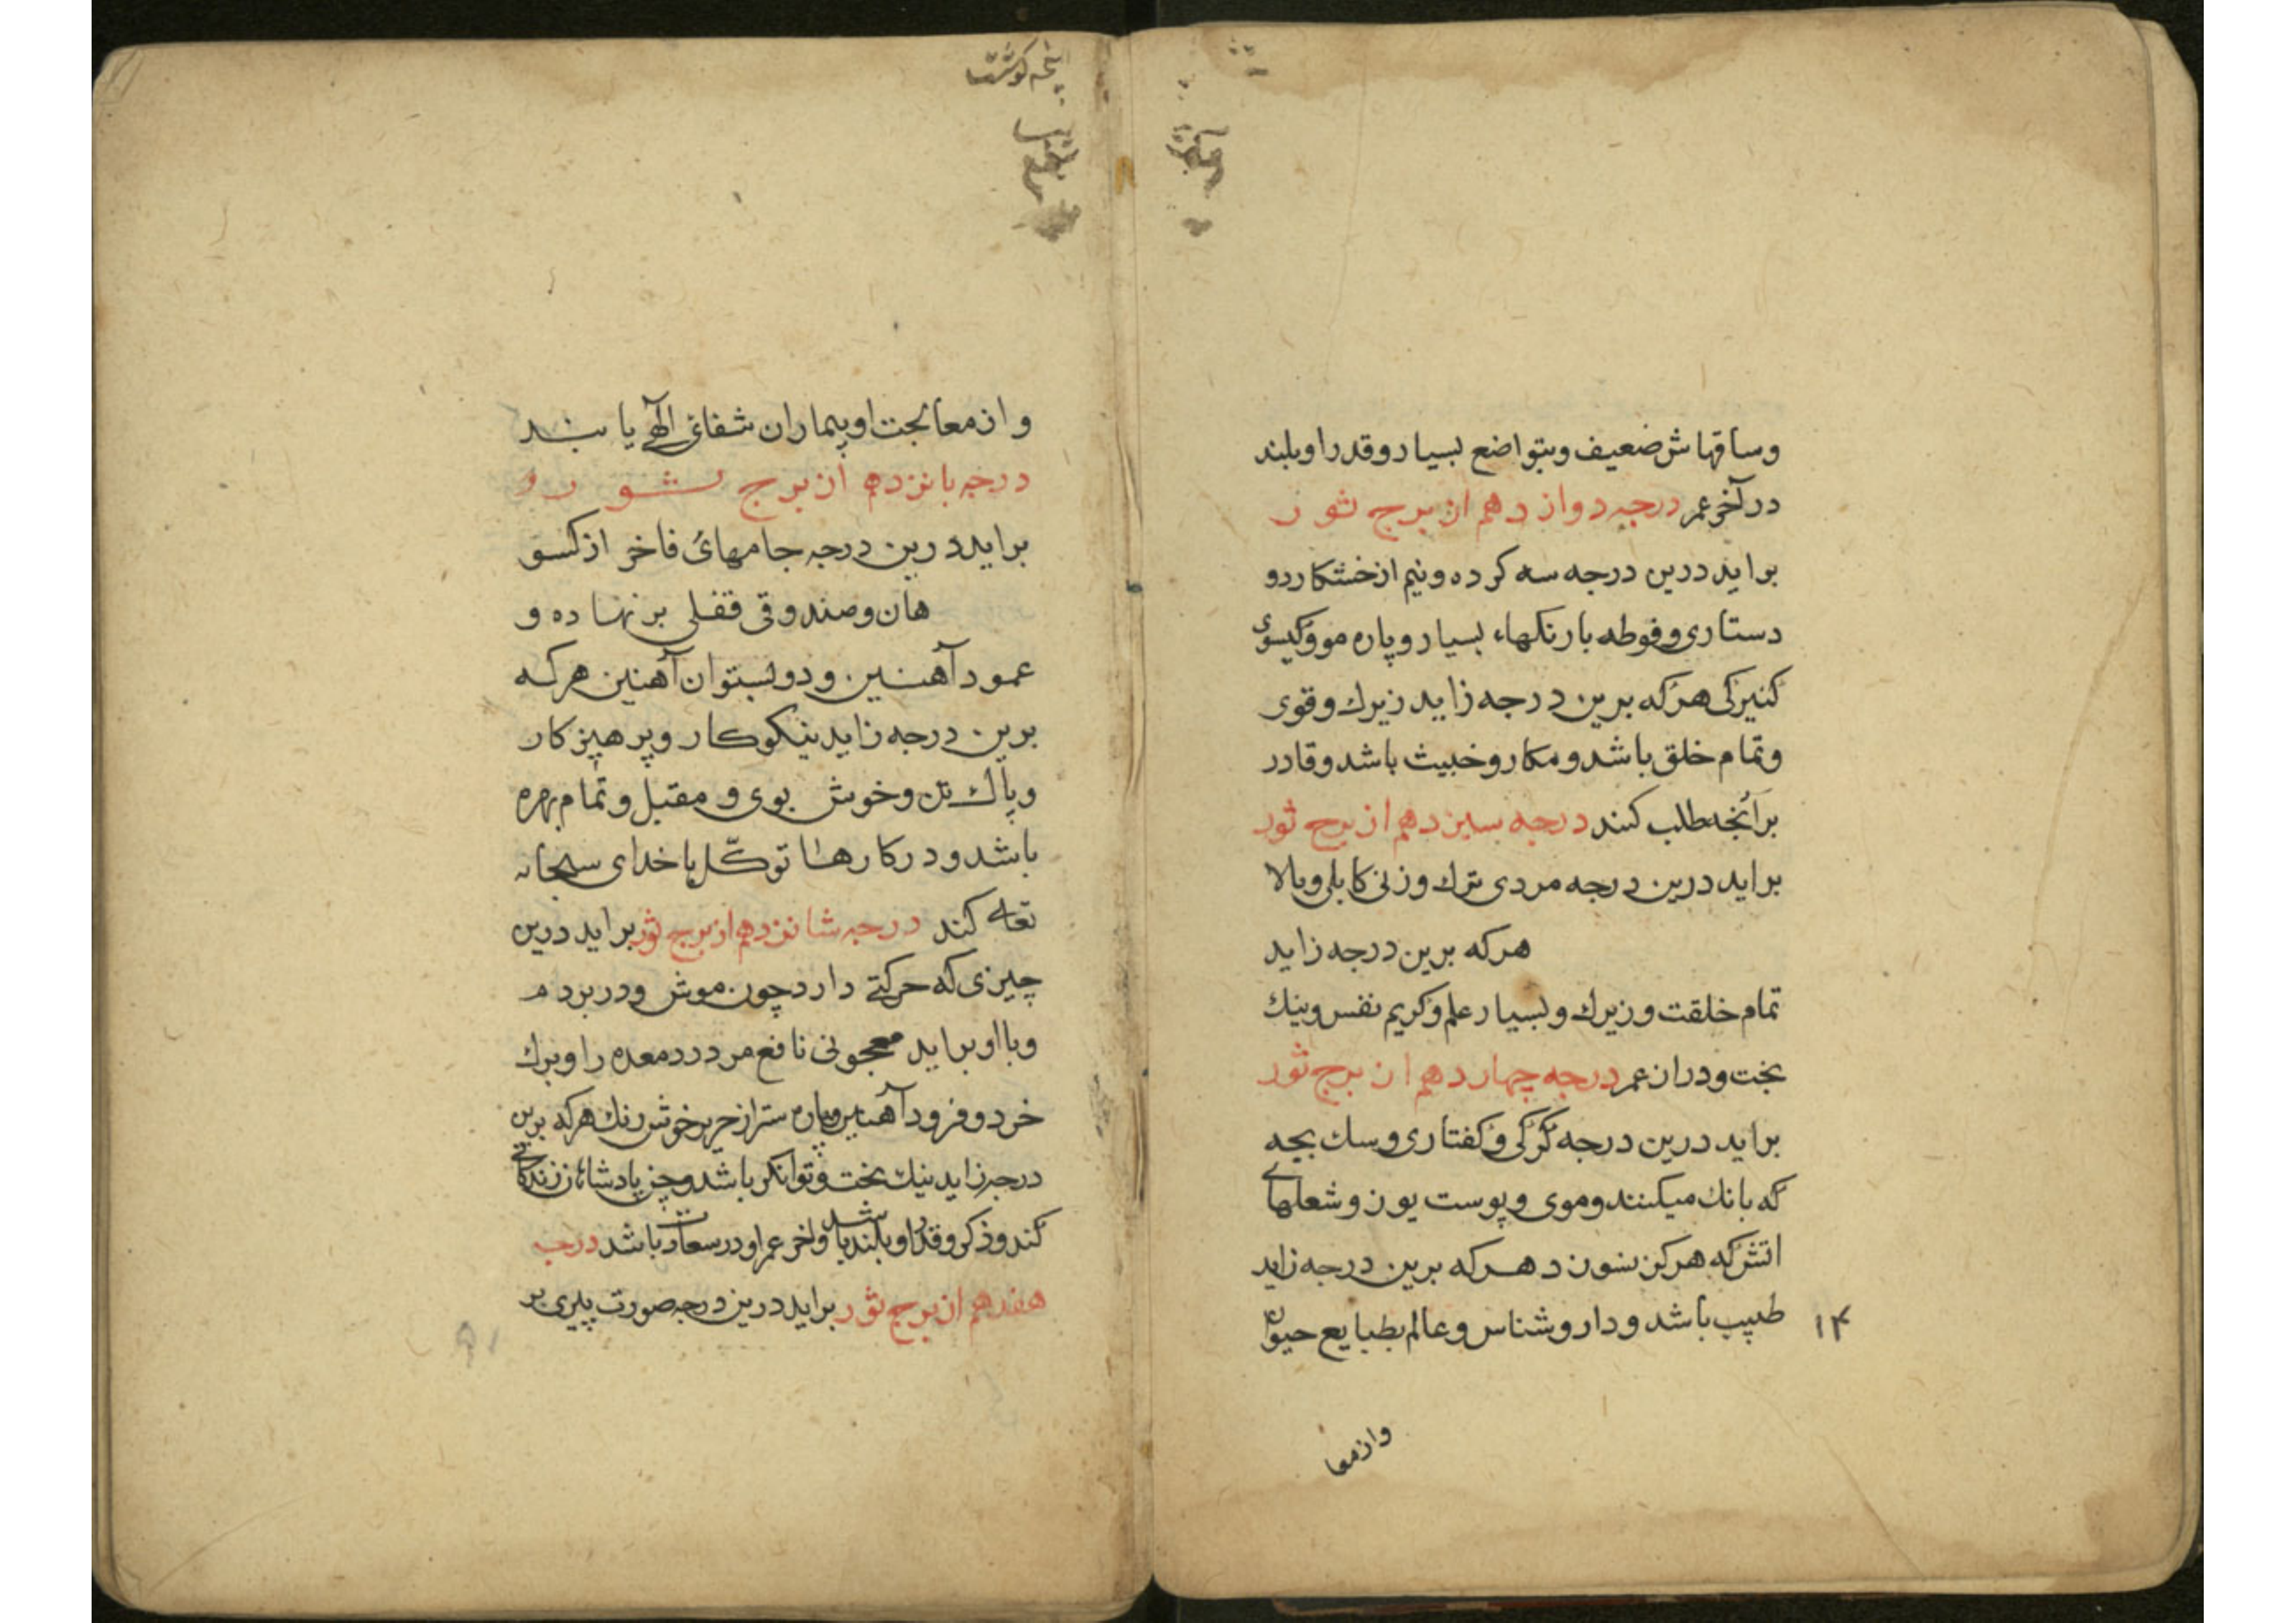 وساقهاش ضعیف وبتواضع بسیار وقدر او بلند
در آخر عمر درجه دوازدهم از برج ثور
براید درین درجه سه کرده ونیم از خشکار دو
دستاری وفوطه بارنکهاء بسیار وپاره مو وکیسوی
کنیزکی هرکه برین درجه زاید زیرك وقوی
وتمام خلق باشد ومکار وخبیث باشد وقادر
برآنچه طلب کند درجه سیزدهم از برج ثور
براید درین درجه مردی ترك وزنی کابلی وبالا
هرکه برین درجه زاید
تمام خلقت وزیرك وبسیار علم وکریم نفس ونیك
بخت ودراز عمر درجه چهاردهم از برج ثور
براید درین درجه کرکی وکفتاری وسك بچه
که بانك میکنند وموی وپوست یوز وشعلهاے
اتش که هرکز نسوزد هرکه برین درجه زاید
طبیب باشد ودارو شناس وعالم بطبایع حیوان
۱۴
وازمعا
پخه کوشت
وازمعالجت او بیماران شفائی الٓهی یابند
درجه پانزدهم از برج ثور
براید درین درجه جامهائ فاخر از کسو
هان وصندوقی قفلی برنهاده و
عمود آهنین ودو بستوان آهنین هرکه
برین درجه زاید نیکوکار وپرهیزکار
وپاك تن وخوش بوی ومقبل وتمام بهره
باشد ودرکارها توکّل باخدای سبحانه
تعالے کند درجه شانزدهم از برج ثور براید درین
چیزی که حرکتے دارد چون موش ودر بردم
وبا او براید معجونی نافع مر درد معده را وبرك
خرد وفرود آهنین وپاره ستر از حریر خوش رنك هرکه برین
درجه زاید نیك بخت وتوانکر باشد وچز پادشاهان زندکانے
کند وذکر وقدر او بلند باشد واخر عمر او درسعادت باشد درجه
هفدهم از برج ثور براید درین درجه صورت پیری بر